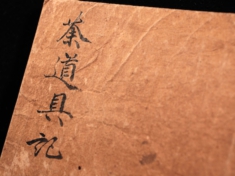 茶道具記